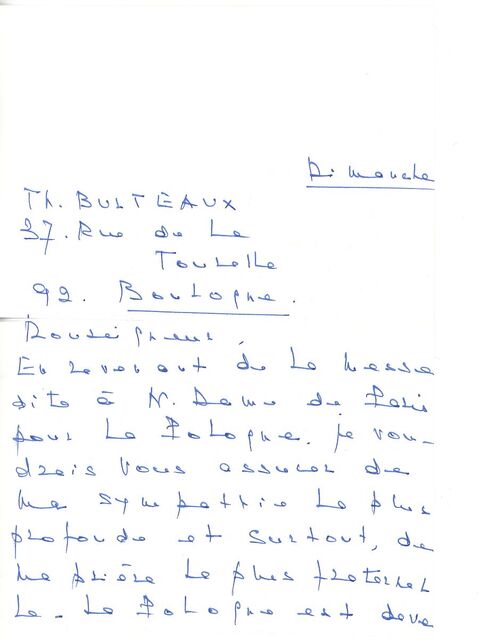 Dimanche
Th. BULTEAUX
37. Rue de La
Tourelle
92. Boulogne.
Monseigneur,
En revenant de la messe
dite à N. Dame de Paris
pour La Pologne. je vou-
drais vous assurer de
ma sympathie la plus
profonde et surtout, de
ma prière la plus fraternel
le. La Pologne est deve